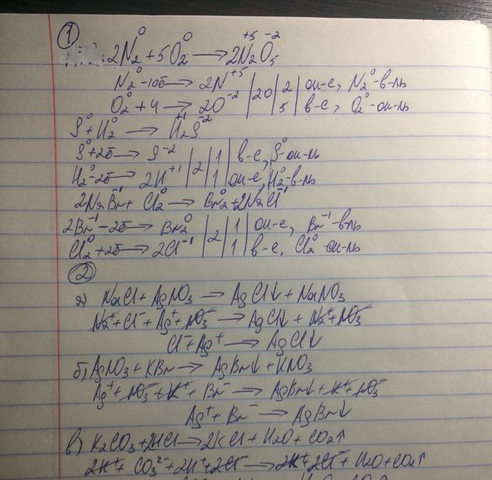 ①
2N₂⁰ + 5O₂⁰ → 2N₂⁺⁵O₅⁻²
N₂⁰ - 10ē → 2N⁺⁵ | 20 | 2 | ок-е, N₂⁰ - в-ль
O₂⁰ + 4 → 2O⁻² | 5 | в-е, O₂⁰ - ок-ль
S⁰ + H₂⁰ → H₂⁺¹S⁻²
S⁰ + 2ē → S⁻² | 2 | 1 | в-е, S⁰ - ок-ль
H₂⁰ - 2ē → 2H⁺¹ | 1 | ок-е, H₂⁰ - в-ль
2NaBr⁻¹ + Cl₂⁰ → Br₂⁰ + 2NaCl⁻¹
2Br⁻¹ - 2ē → Br₂⁰ | 2 | 1 | ок-е, Br⁻¹ - в-ль
Cl₂⁰ + 2ē → 2Cl⁻¹ | 1 | в-е, Cl₂⁰ ок-ль
②
а) NaCl + AgNO₃ → AgCl↓ + NaNO₃
Na⁺ + Cl⁻ + Ag⁺ + NO₃⁻ → AgCl↓ + Na⁺ + NO₃⁻
Cl⁻ + Ag⁺ → AgCl↓
б) AgNO₃ + KBr → AgBr↓ + KNO₃
Ag⁺ + NO₃⁻ + K⁺ + Br⁻ → AgBr↓ + K⁺ + NO₃⁻
Ag⁺ + Br⁻ → AgBr↓
в) K₂CO₃ + 2HCl → 2KCl + H₂O + CO₂↑
2K⁺ + CO₃²⁻ + 2H⁺ + 2Cl⁻ → 2K⁺ + 2Cl⁻ + H₂O + CO₂↑